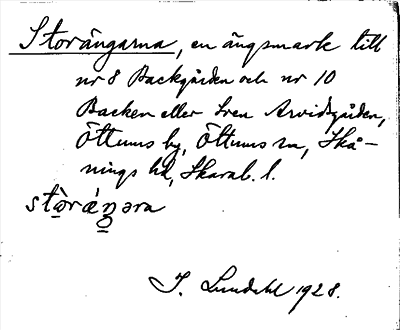 Storängarna, en ängsmark till
nr 8 Backgården och nr 10
Backen eller Sven Arvidsgården,
Öttums by, Öttums sn, Skå-
nings hd, Skarab. l.
I. Lundahl 1928.